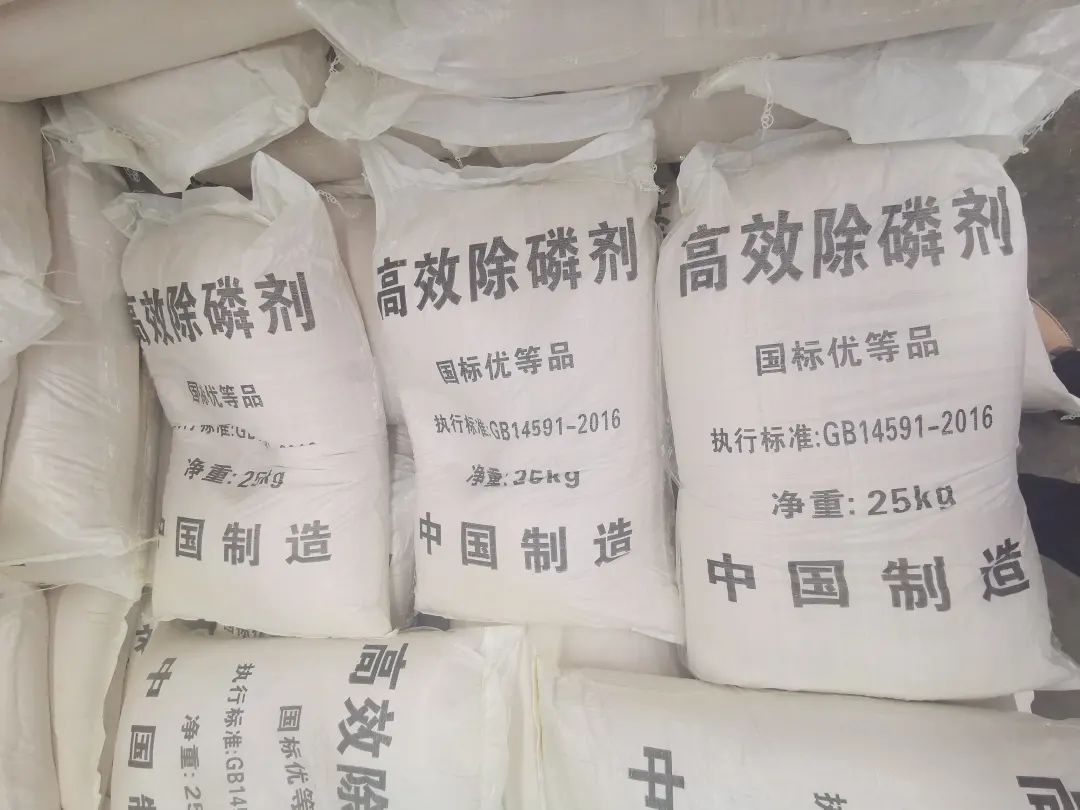 高效除磷剂
国标优等品
执行标准:GB
净重:25kg
中国制造
高效除磷剂
国标优等品
执行标准:GB14591-2016
净重:25kg
中国制造
高效除磷剂
国标优等品
执行标准:GB14591-2016
净重:25kg
中国制造
高效除
国标优等
执行标准:GB145
净重:25
中国制
国标优
中